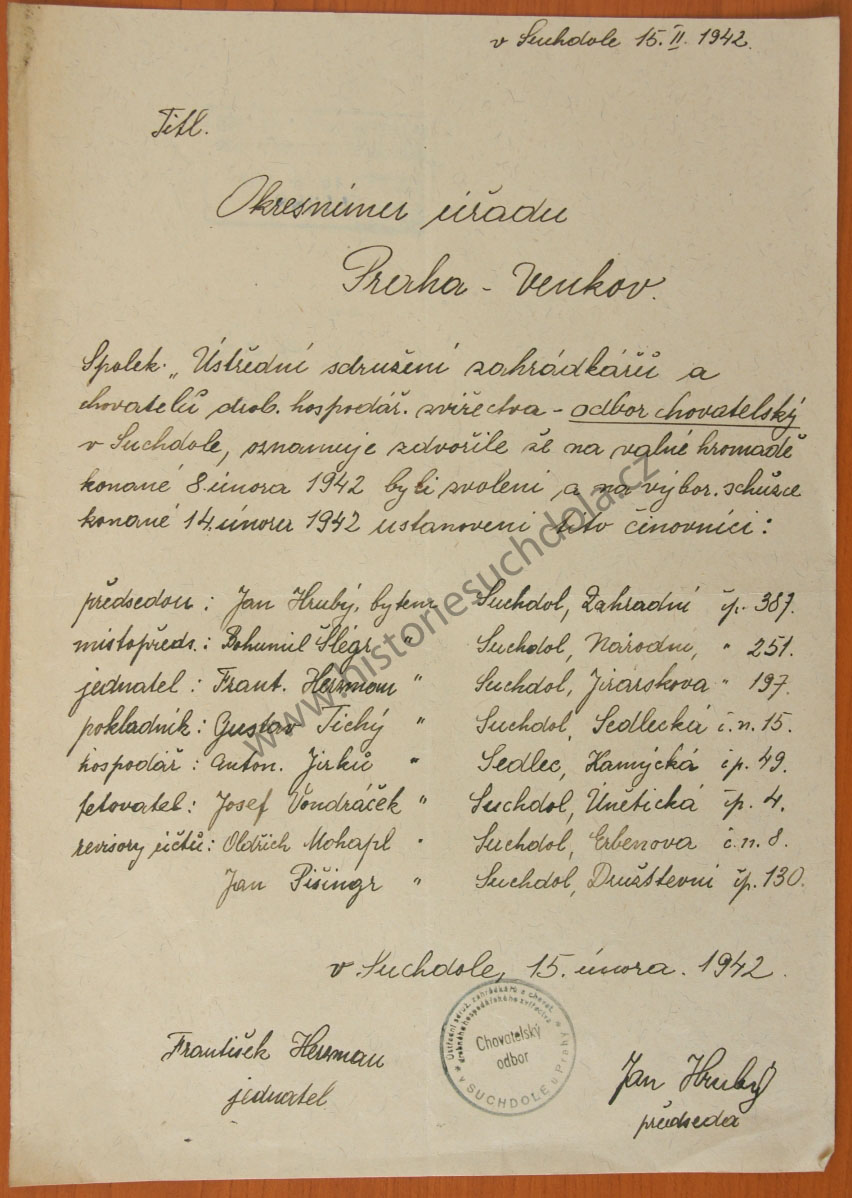 v Suchdole 15. II. 1942.
Titl.
Okresnímu úřadu
Praha - Venkov.
Spolek „Ústřední sdružení zahrádkářů a
chovatelů drob. hospodář. zvířectva - odbor chovatelský
v Suchdole, oznamuje zdvořile že na valné hromadě
konané 8. února 1942 byli zvoleni a na výbor. schůzce
konané 14. února 1942 ustanoveni tito činovníci:
předsedou: Jan Hrubý, bytem Suchdol, Zahradní čp. 387.
místopřed.: Bohumil Šlégr " Suchdol, Národní, " 251.
jednatel: Frant. Herzman " Suchdol, Jiráskova " 197.
pokladník: Gustav Tichý " Suchdol, Sedlecká č.n. 15.
hospodář: Anton. Jirků " Sedlec, Kamýcká čp. 49.
tetovatel: Josef Vondráček " Suchdol, Únětická čp. 4.
revisory účtů: Oldřich Mohapl " Suchdol, Erbenova č.n. 8.
Jan Pišingr " Suchdol, Družstevní čp. 130.
v Suchdole, 15. února. 1942.
František Herzman
jednatel
Ústřední sdruž. zahrádkářů a chovat.
drobného hospodářského zvířectva
Chovatelský
odbor
v SUCHDOLE u Prahy
Jan Hrubý
předseda
www.historiesuchdola.cz